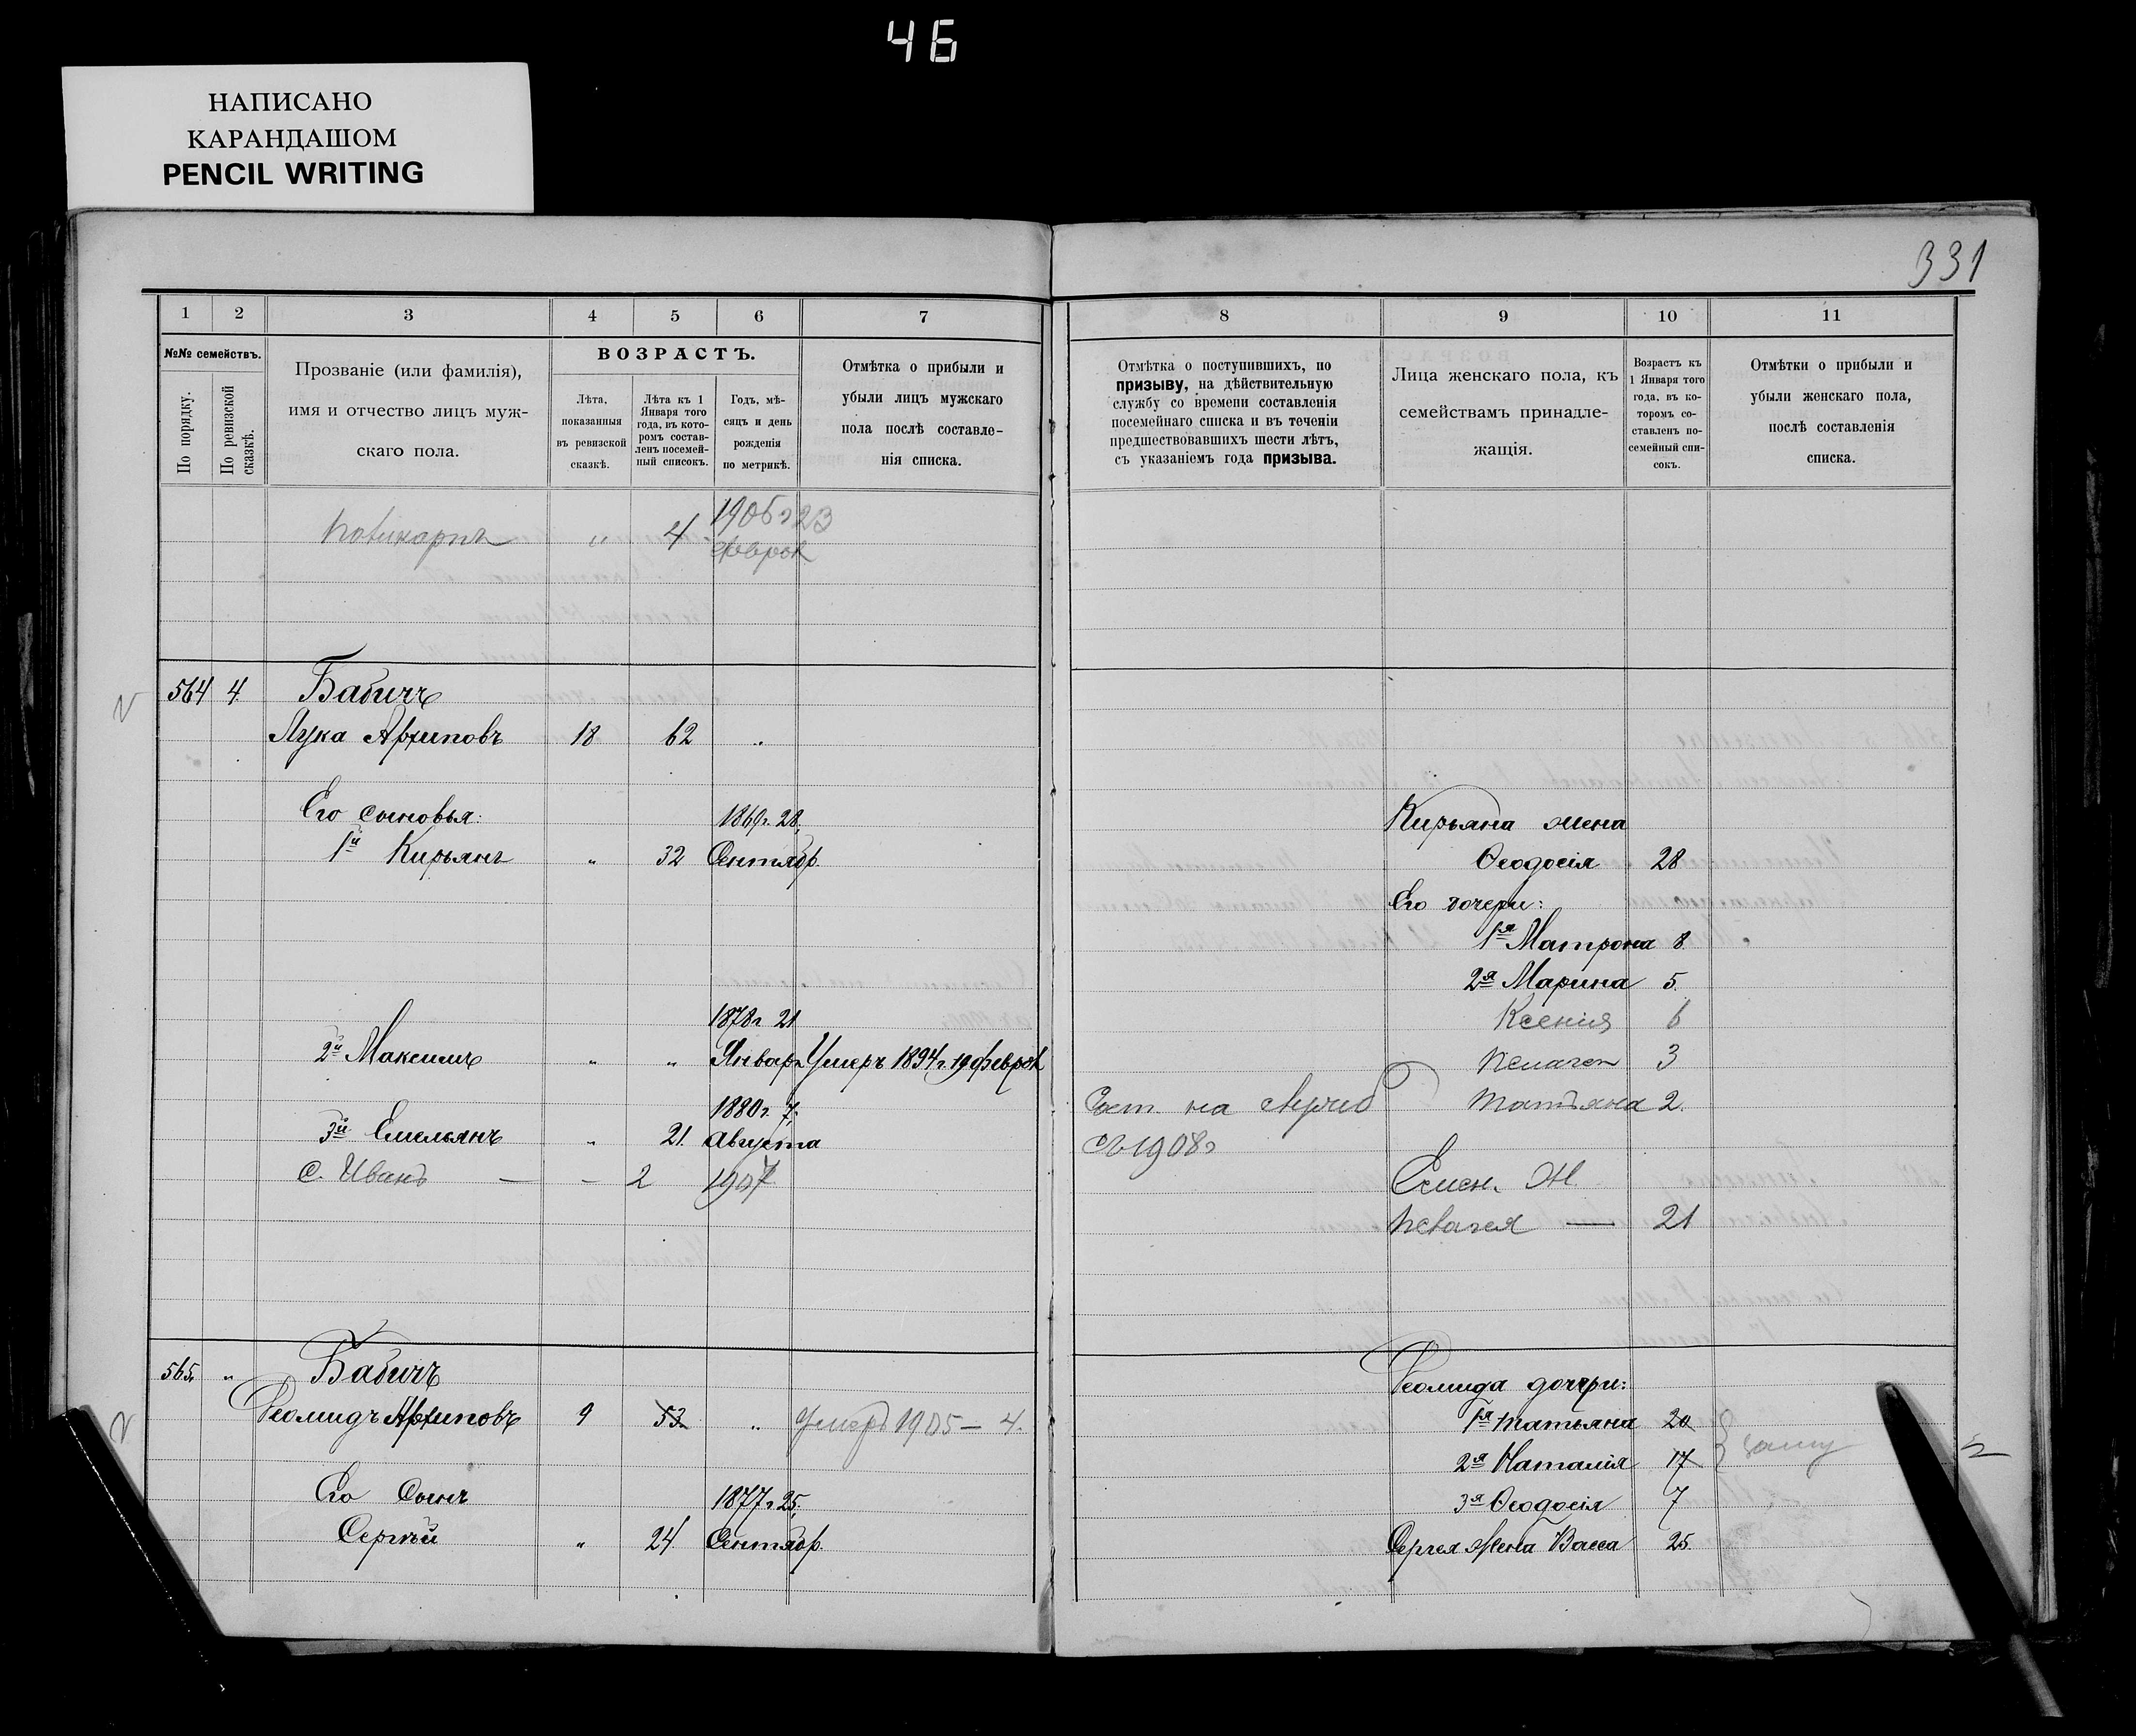 46
НАПИСАНО
КАРАНДАШОМ
PENCIL WRITING
331
1 2 3 4 5 6 7
№№ семействъ.
По порядку.
По ревизской сказкѣ.
Прозваніе (или фамилія),
имя и отчество лицъ муж-
скаго пола.
ВОЗРАСТЪ.
Лѣта,
показанныя
въ ревизской
сказкѣ.
Лѣта къ 1
Января того
года, въ кото-
ромъ состав-
ленъ посемей-
ный списокъ.
Годъ, мѣ-
сяцъ и день
рожденія
по метрикѣ.
Отмѣтка о прибыли и
убыли лицъ мужскаго
пола послѣ составле-
нія списка.
8 9 10 11
Отмѣтка о поступившихъ, по
призыву, на дѣйствительную
службу со времени составленія
посемейнаго списка и въ теченіи
предшествовавшихъ шести лѣтъ,
съ указаніемъ года призыва.
Лица женскаго пола, къ
семействамъ принадле-
жащія.
Возрастъ къ
1 Января того
года, въ ко-
торомъ со-
ставленъ по-
семейный спи-
сокъ.
Отмѣтки о прибыли и
убыли женскаго пола,
послѣ составленія
списка.
1906 г 23
Поликарпъ " 4 феврал
564 4. Бабичъ
Лука Архиповъ 18 62 "
Его сыновья: 1869 г. 28,
1й Кирьянъ " 32 Сентябр.
1878 г 21
2й Максимъ " " Январ. Умеръ 1894 г. 19 феврал
1880 г. 7,
3й Емельянъ " 21. Августа
с. Иванъ — – 2 1907
Кирьяна жена
Ѳеодосія 28
Его дочери:
1я Матрона 8.
2я Марина 5.
Ксенія 6
Пелагея 3
Сост. на служб Татьяна 2.
съ 1908 г
Емел. Ж
Пелагея — 21
565. " Бабичъ
Леомидъ Архиповъ 9 53 " Умеръ 1905 – 4.
Его Сынъ 1877 г 25,
Сергѣй " 24 Сентябр.
Леомида дочери:
1я Татьяна 20
2я Наталія 17
3я Ѳеодосія 7
Сергея Жена Васса 25.